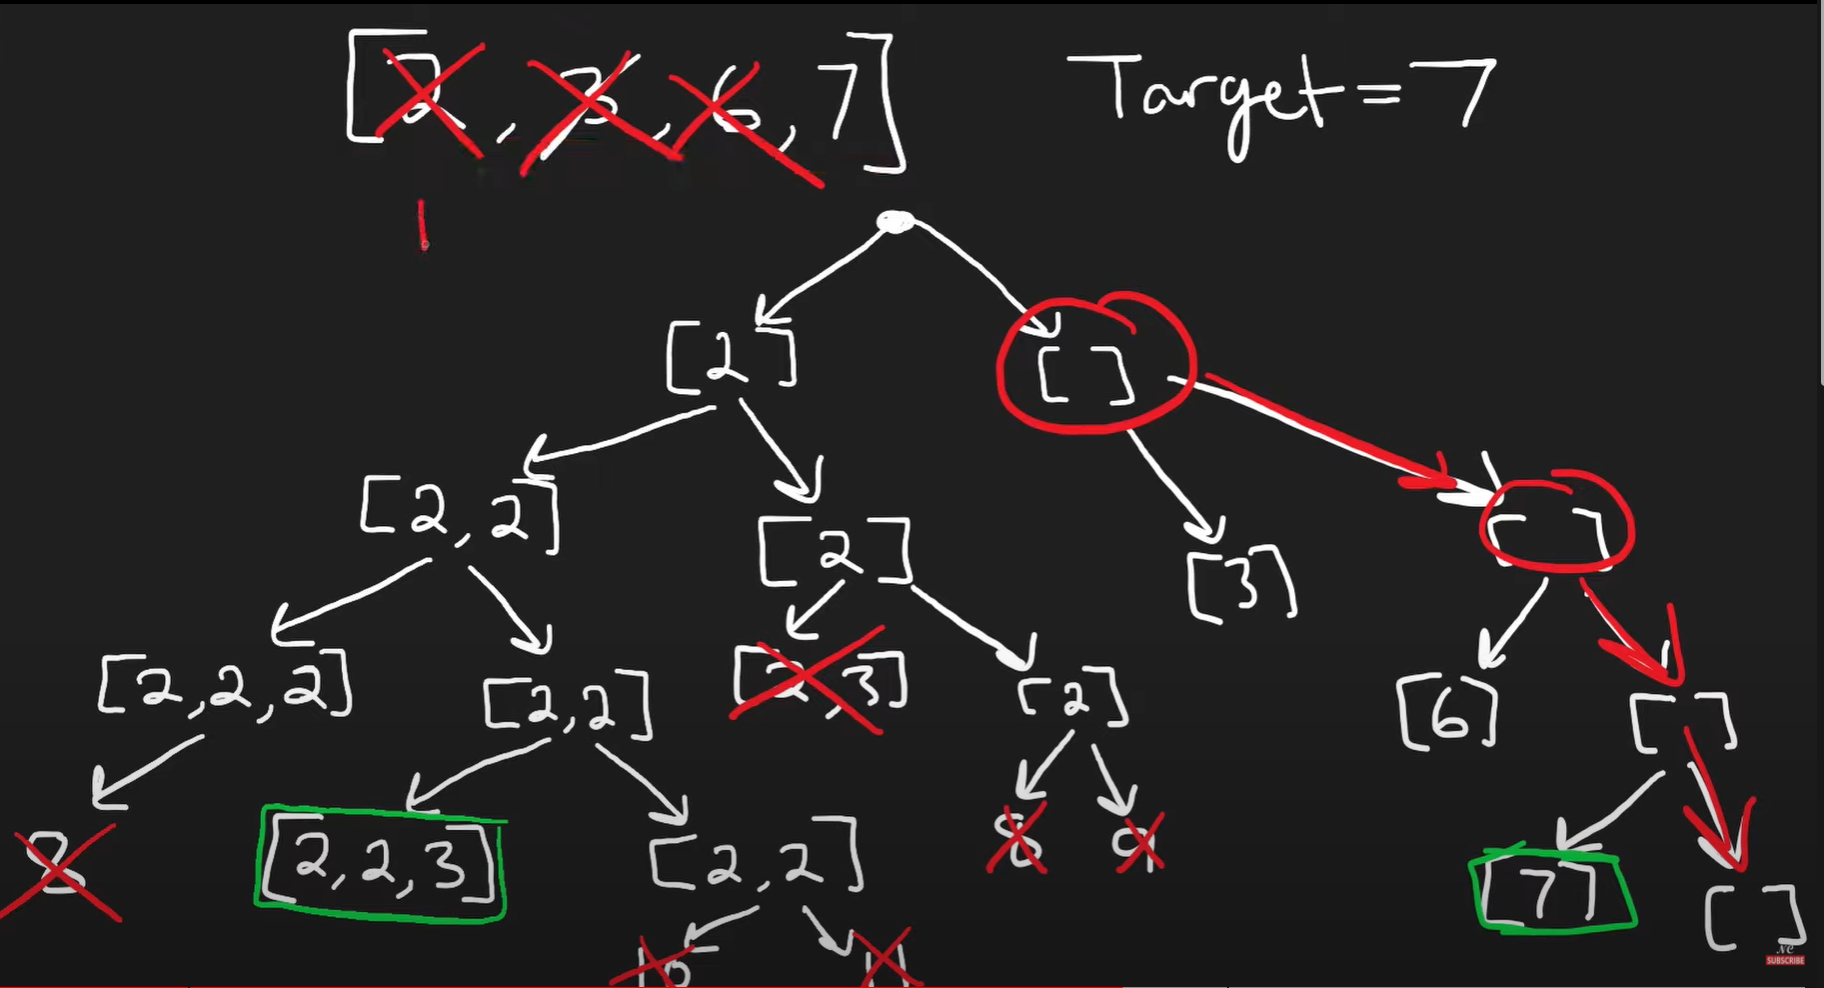 [2, 3, 6, 7]
Target = 7
[2]
[ ]
[2, 2]
[2]
[3]
[ ]
[2, 2, 2]
[2, 2]
[2, 3]
[2]
[6]
[ ]
8
[2, 2, 3]
[2, 2]
8
9
[7]
[ ]
10
11
NC
SUBSCRIBE